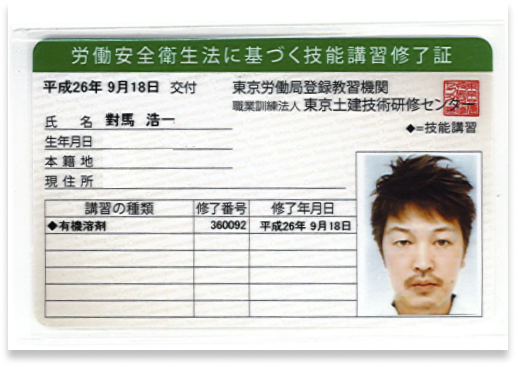 労働安全衛生法に基づく技能講習修了証
平成26年 9月18日 交付
東京労働局登録教習機関
職業訓練法人 東京土建技術研修センター
◆=技能講習
氏 名 對馬 浩一
生年月日
本籍地
現住所
講習の種類 修了番号 修了年月日
◆有機溶剤 360092 平成26年 9月18日